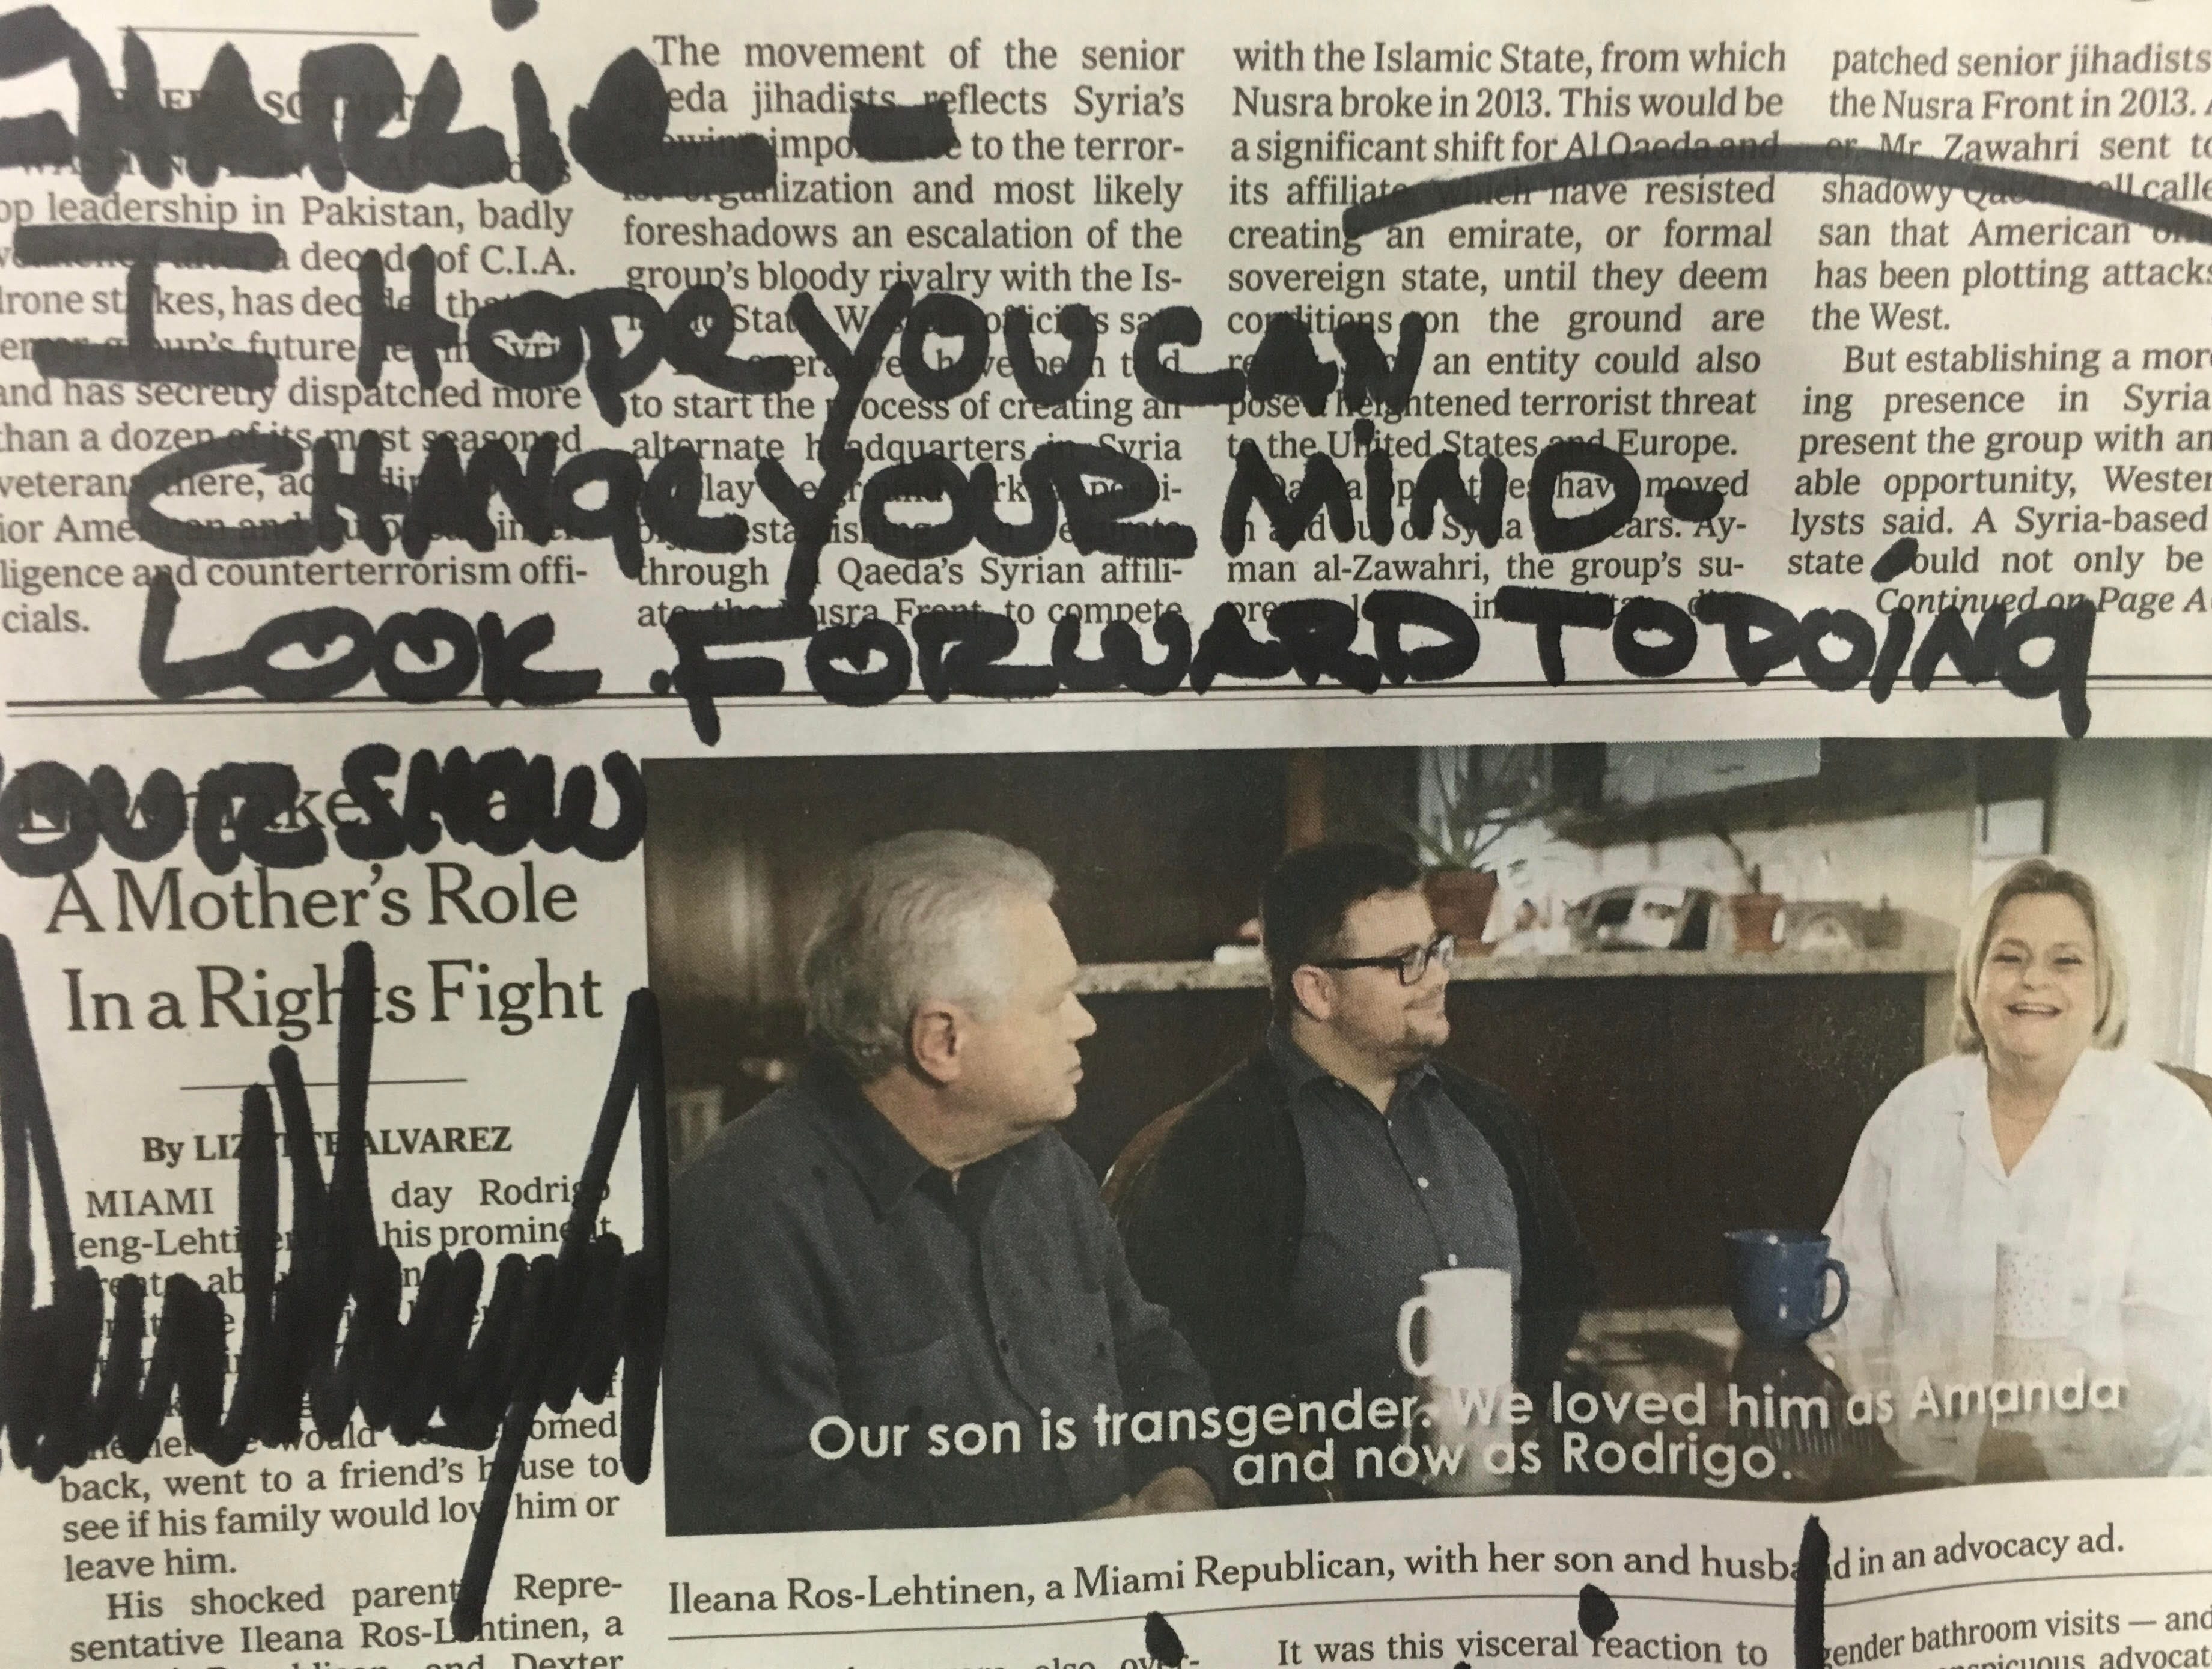 CHARLIE -
I HOPE YOU CAN
CHANGE YOUR MIND -
LOOK FORWARD TO DOING
YOUR SHOW
op leadership in Pakistan, badly
a decade of C.I.A.
drone strikes, has decided that
group's future in Syria
and has secretly dispatched more
than a dozen of its most seasoned
veterans there, according
ior American and European intel-
ligence and counterterrorism offi-
cials.
The movement of the senior
eda jihadists reflects Syria's
importance to the terror-
ist organization and most likely
foreshadows an escalation of the
group's bloody rivalry with the Is-
lamic State, Western officials say.
have been told
to start the process of creating an
alternate headquarters in Syria
lay
through Qaeda's Syrian affili-
ate, the Nusra Front, to compete
with the Islamic State, from which
Nusra broke in 2013. This would be
a significant shift for Al Qaeda and
its affiliate, which have resisted
creating an emirate, or formal
sovereign state, until they deem
conditions on the ground are
an entity could also
pose a heightened terrorist threat
to the United States and Europe.
Qaeda operatives have moved
in and out of Syria years. Ay-
man al-Zawahri, the group's su-
patched senior jihadists
the Nusra Front in 2013.
er, Mr. Zawahri sent to
shadowy Qaeda cell calle
san that American
has been plotting attacks
the West.
But establishing a mor
ing presence in Syria
present the group with an
able opportunity, Wester
lysts said. A Syria-based
state could not only be
Continued on Page A
A Mother's Role
In a Rights Fight
By LIZETTE ALVAREZ
MIAMI day Rodrigo
Heng-Lehtinen his prominent
would
back, went to a friend's house to
see if his family would love him or
leave him.
His shocked parents, Repre-
sentative Ileana Ros-Lehtinen, a
and Dexter
Our son is transgender. We loved him as Amanda
and now as Rodrigo.
Ileana Ros-Lehtinen, a Miami Republican, with her son and husband in an advocacy ad.
It was this visceral reaction to
gender bathroom visits — and